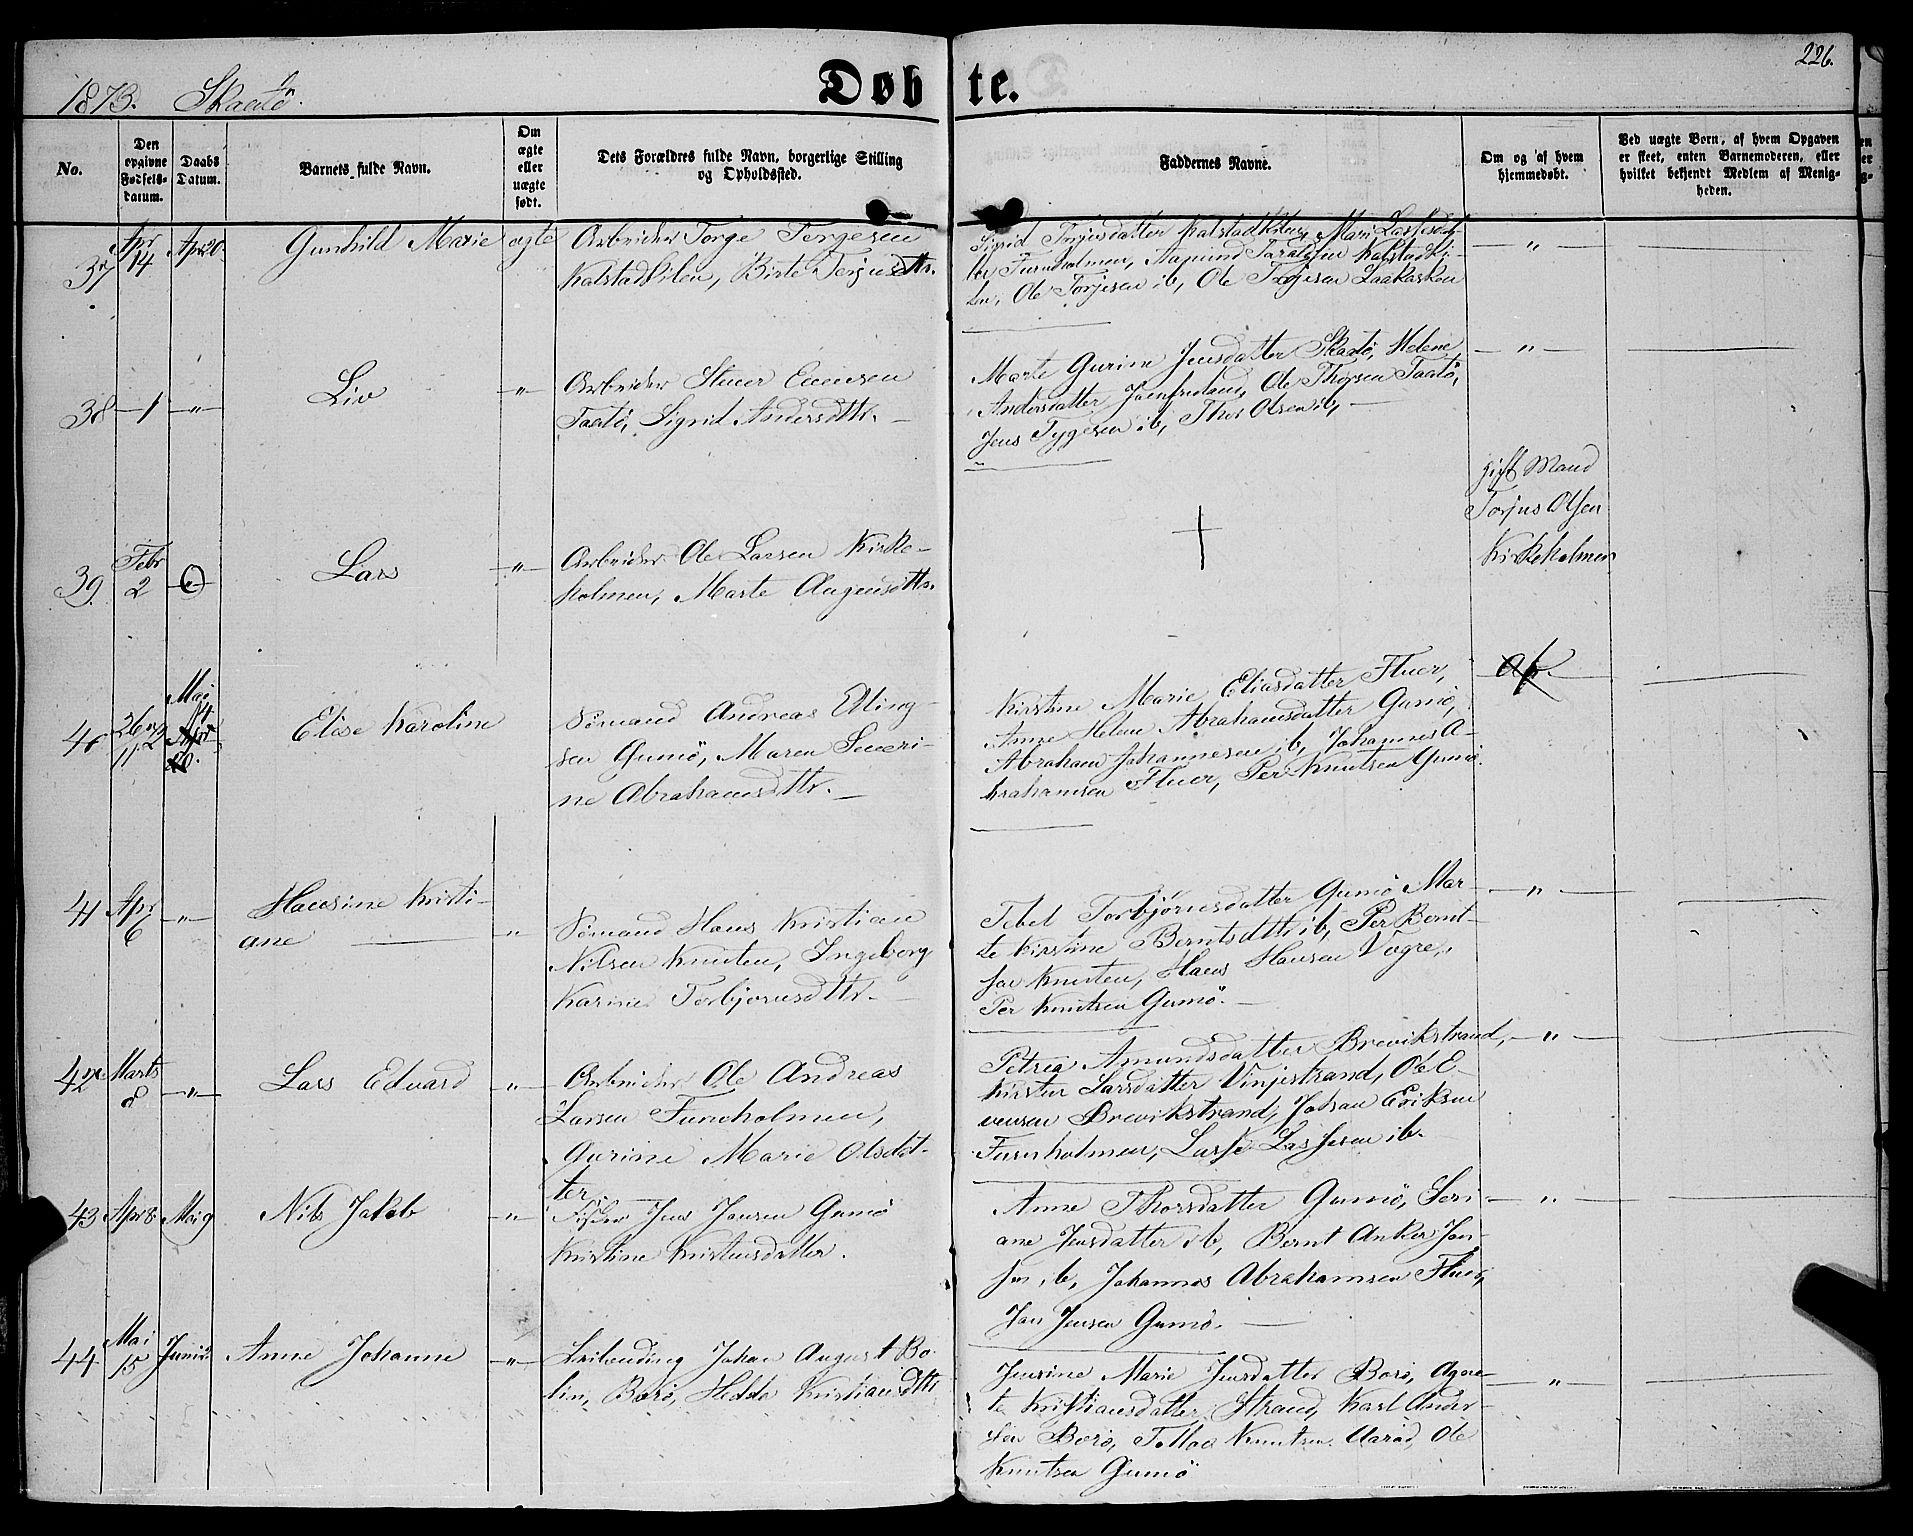 226.
1873. Skaatö.
Døbte.
No.
Den opgivne Fødsels-datum.
Daabs Datum.
Barnets fulde Navn.
Om ægte eller uægte født.
Dets Forældres fulde Navn, borgerlige Stilling og Opholdssted.
Faddernes Navne.
Om og af hvem hjemmedøbt.
Ved uægte Børn, af hvem Opgaven er skeet, enten Barnemoderen, eller hvilket bekjendt Medlem af Menigheden.
37 Apr 14 Apr 20. Gunhild Marie ægte
Arbeider Torge Torgesen
Kalstadkilen, Birte Terjusdttr.
Sigrid Torjusdatter Kalstadkilen, Mari Lassesdat-
ter Furuholmen, Aamund Taraldsen Kalstadki-
len, Ole Torjesen ib, Ole Torjesen
— " —
38 — 1 — " — Liv — " —
Arbeider
Taatö, Sigrid Andersdttr. —
Marte Gurine Jensdatter Skaatö, Helene
Andersdatter Jomfruland, Ole Thorsen Taatö,
Jens Tygesen ib, Thor Olsen ib, —
— " —
39. Febr 2 Lars — " —
Arbeider Ole Larsen Kirke-
holmen, Marte Augensdttr.
gift Mand
Torjus Olsen
Kirkeholmen
40 Mai 4 Elise Karoline
Sømand Andreas Elling-
sen Gumö, Maren Severi-
ne Abrahamsdttr. —
Kirstine Marie Eliasdatter Fluer,
Anne Helene Abrahamsdatter Gumö,
Abraham Johannesen ib, Johannes A-
brahamsen Fluer, Per Knutsen Gumö.
41 Apr 6 — " — Hansine Kristi-
ane — " —
Sømand Hans Kristian
Nilsen Knuten, Ingeborg
Karine Torbjørnsdttr. —
Tebel Torbjørnsdatter Gumö, Mar-
te Kirstine Berntsdttr ib, Per Bernt-
sen Knuten, Hans Hansen Vogre,
Per Knutsen Gumö. —
— " —
42 Marts 8 — " — Lars Edvard — " —
Arbeider Ole Andreas
Larsen Furuholmen,
Gurine Marie Olsdat-
ter
Petrea Amundsdatter Brevikstrand,
Kirsten Larsdatter Vinjestrand, Ole E-
vensen Brevikstrand, Johan Eriksen
Furuholmen, Lasse Lassesen ib.
— " —
43 Apr 8 Mai 9 Nils Jakob — " —
Fisker Jens Jansen Gumö
Kirstine Kristensdatter.
Anne Thorsdatter Gumö, Seri-
ane Jensdatter ib, Bernt Anker Jan-
sen ib, Johannes Abrahamsen Fluer,
Jan Jensen Gumö. —
— " —
44 Mai 15 Juni 2 Anne Johanne — " —
Leilending Johan August Bo-
lin, Borö, Hedda Kristiansdttr
Jensine Marie Jensdatter Borö, Agne-
te Kristiansdatter Strand, Karl Ander-
sen Borö, Tollac Knutsen Aarö, Ole
Knutsen Gumö
— " —